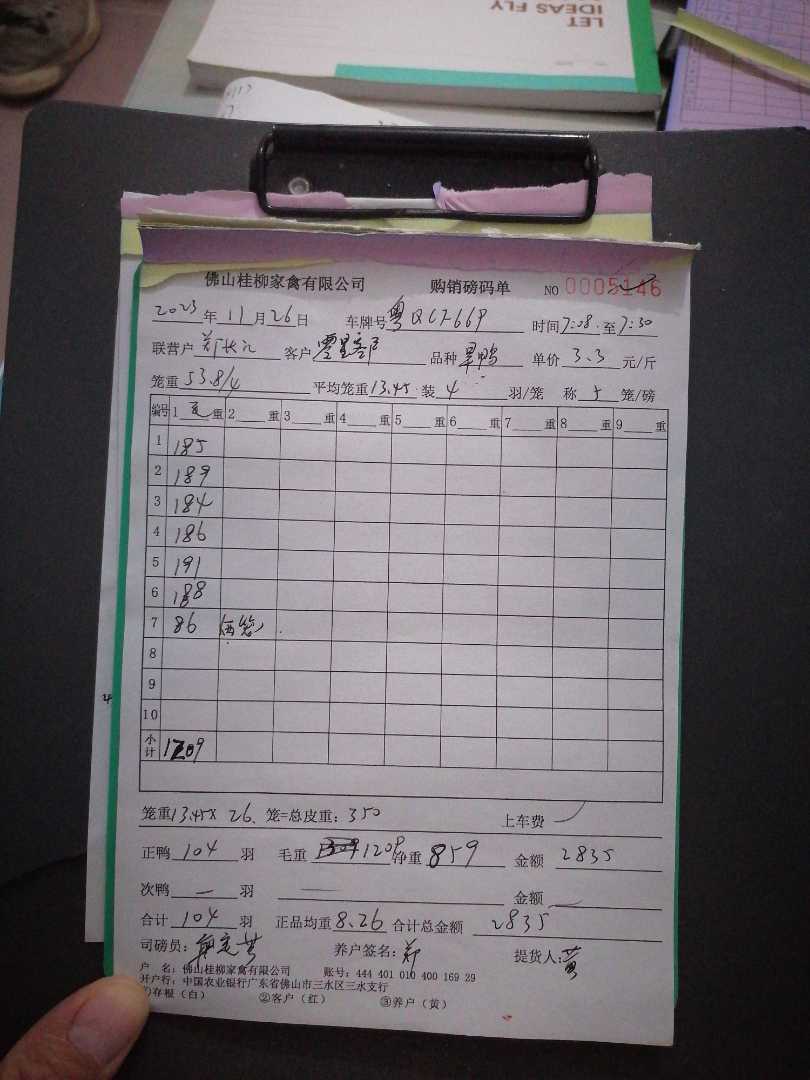 LET
IDEAS FLY
佛山桂柳家禽有限公司 购销磅码单 NO 0005146
2023年11月26日 车牌号粤QCF669 时间7:08至7:30
联营户 郑 客户 零星客户 品种 单价 3.3 元/斤
笼重 53.8/4 平均笼重13.45 装 4 羽/笼 称 5 笼/磅
编号 1 重 2 重 3 重 4 重 5 重 6 重 7 重 8 重 9 重
1 185
2 189
3 184
4 186
5 191
6 188
7 86 (两笼)
8
9
10
小计 1209
笼重13.45× 26 笼=总皮重:350 上车费
正鸭 104 羽 毛重 1209 净重 859 金额 2835
次鸭 — 羽 金额
合计 104 羽 正品均重 8.26 合计总金额 2835
司磅员: 养户签名:郑 提货人:黄
户 名:佛山桂柳家禽有限公司 账号:444 401 010 400 169 29
开户行:中国农业银行广东省佛山市三水区三水支行
①存根(白) ②客户(红) ③养户(黄)